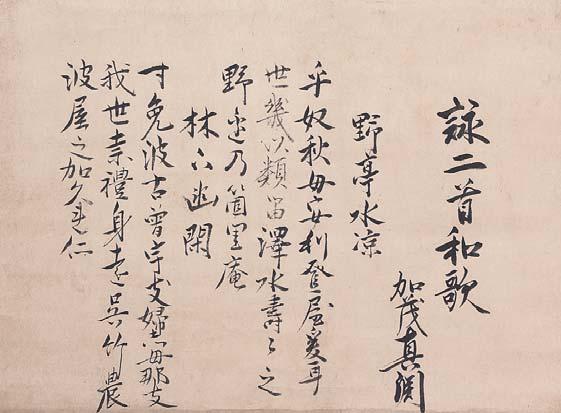 詠二首和歌
加茂真渕
野亭水凉
乎奴秋毋安利登屋爰耳
世幾以類留澤水壽々之
野邊乃箇里庵
林下幽閑
寸免波古曽宇支婦志毋那支
我世柰禮身遠呉竹農
波屋之加久連仁